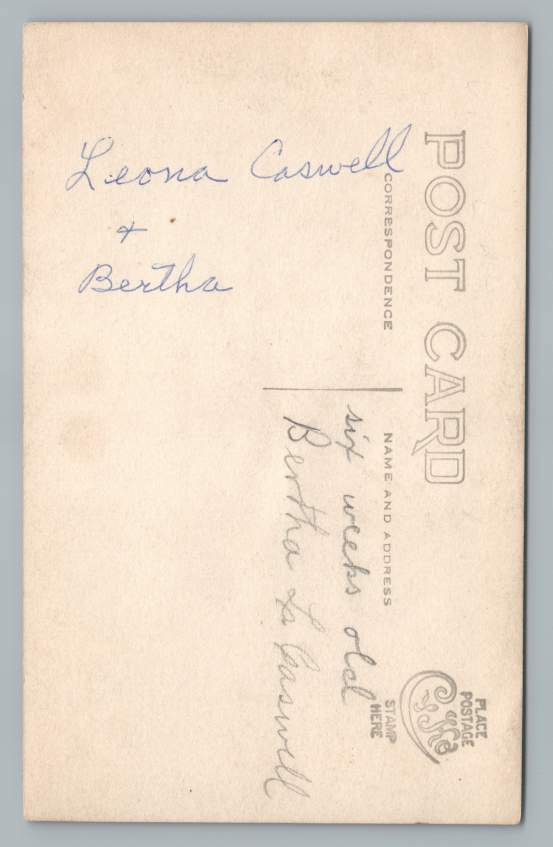 Leona Caswell
+
Bertha
POST CARD
CORRESPONDENCE
NAME AND ADDRESS
PLACE
POSTAGE
STAMP
HERE
six weeks old
Bertha L Caswell